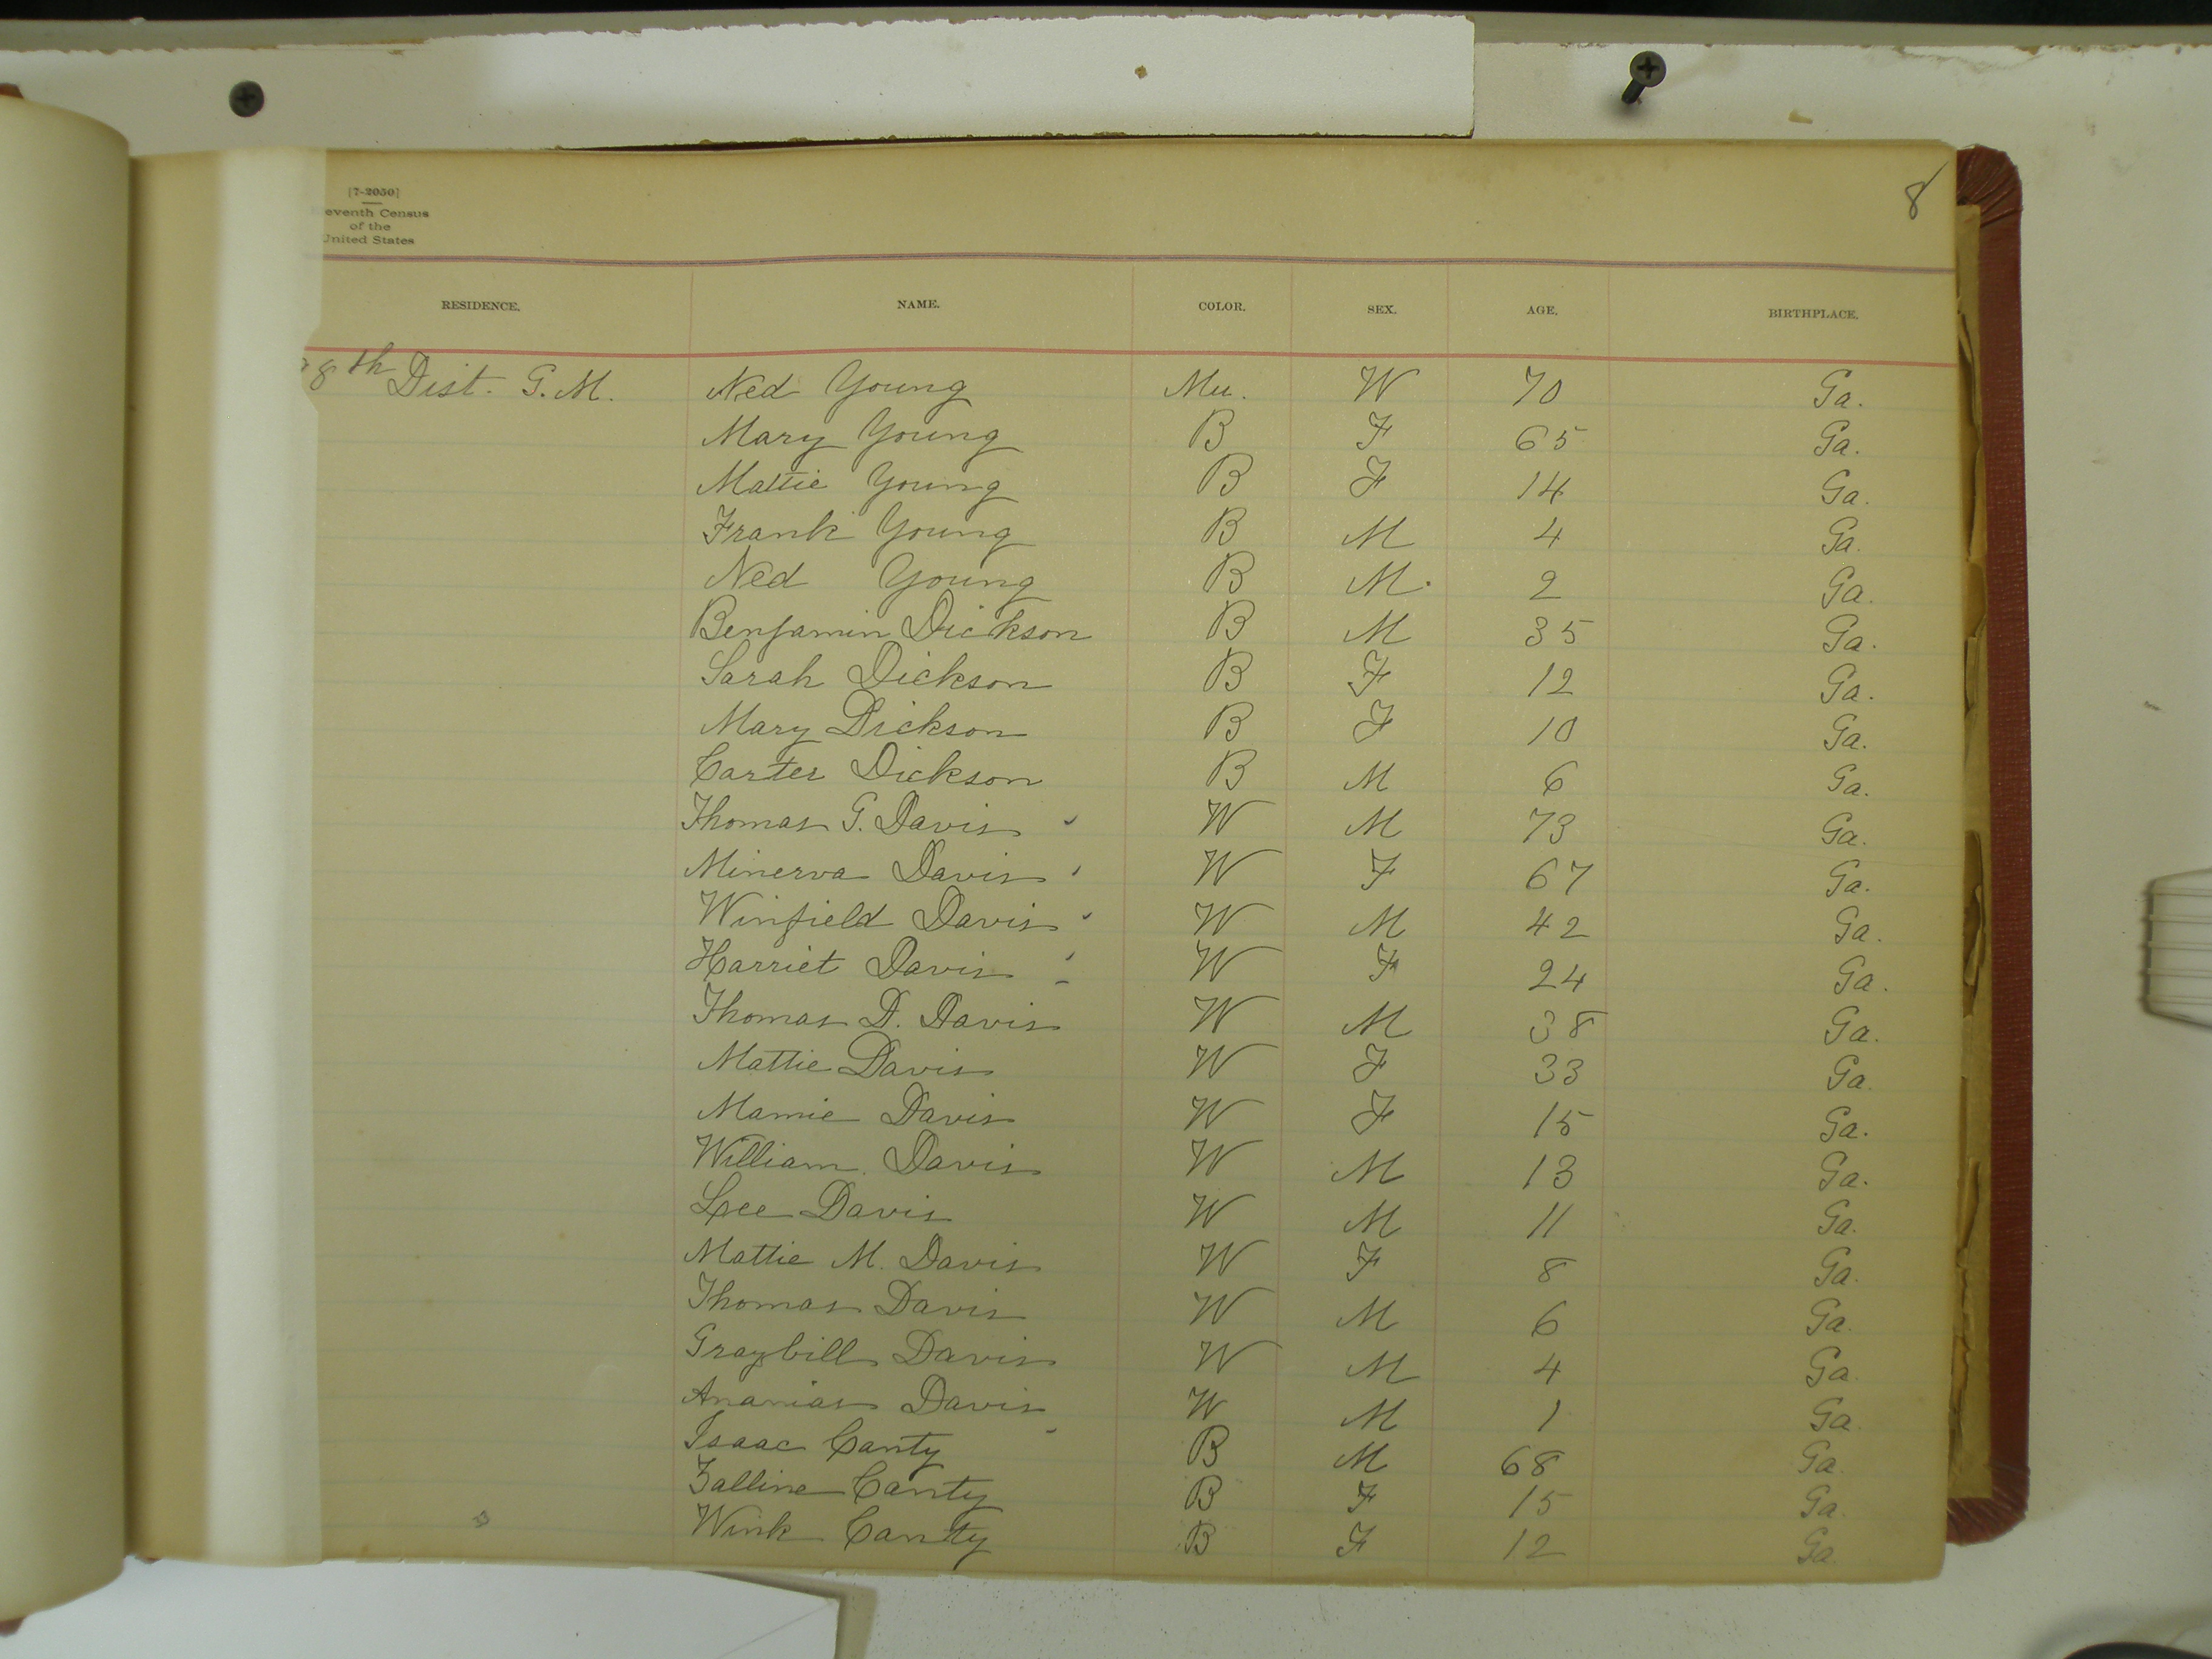 8
[7-2050]
eventh Census
of the
United States
RESIDENCE. NAME. COLOR. SEX. AGE. BIRTHPLACE.
8th Dist. G. M. Ned Young Mu. W 70 Ga.
Mary Young B F 65 Ga.
Mattie Young B F 14 Ga.
Frank Young B M 4 Ga.
Ned Young B M. 2 Ga.
Benjamin Dickson B M 35 Ga.
Sarah Dickson B F 12 Ga.
Mary Dickson B F 10 Ga.
Carter Dickson B M 6 Ga.
Thomas G. Davis W M 73 Ga.
Minerva Davis W F 67 Ga.
Winfield Davis W M 42 Ga.
Harriet Davis W F 24 Ga.
Thomas D. Davis W M 38 Ga.
Mattie Davis W F 33 Ga.
Mamie Davis W F 15 Ga.
William Davis W M 13 Ga.
Lee Davis W M 11 Ga.
Mattie M. Davis W F 8 Ga.
Thomas Davis W M 6 Ga.
Graybill Davis W M 4 Ga
Ananias Davis W M 1 Ga
Isaac Canty B M 68 Ga
Canty B F 15 Ga.
Wink Canty B F 12 Ga